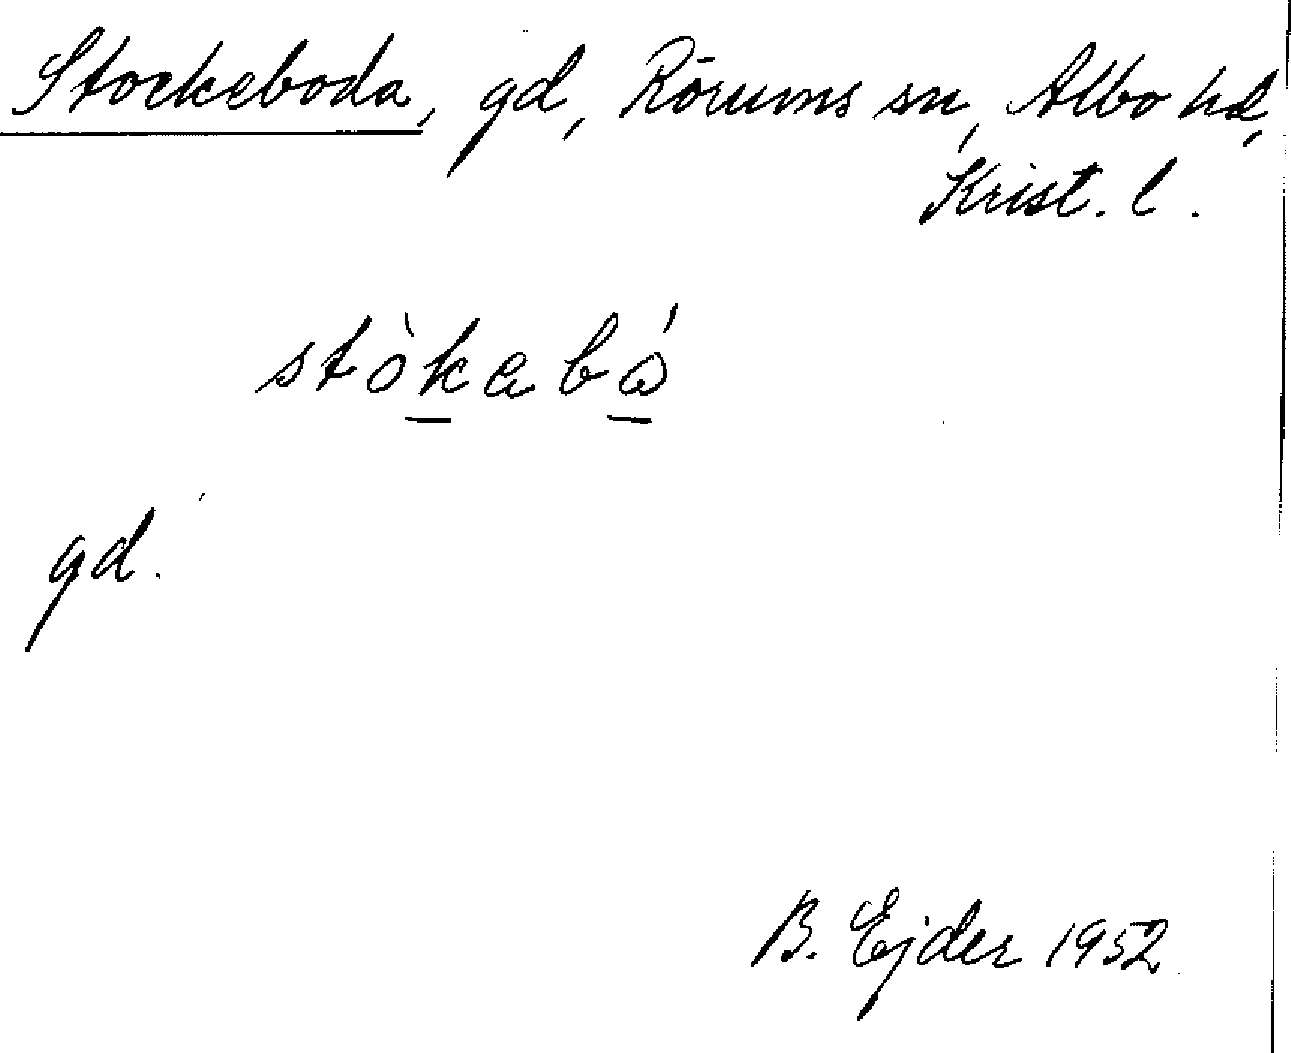 Stockeboda, gd, Rörums sn, Albo hd,
Krist. l.
stòkebó
gd.
B. Ejder 1952